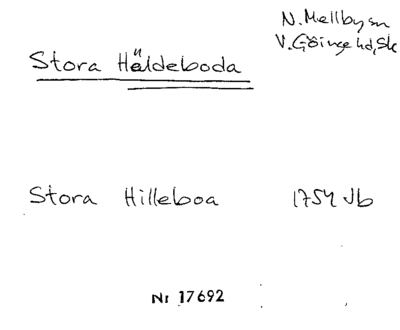 N. Mellby sn
V. Göinge hd, Sk
Stora Häldeboda
Stora Hilleboa 1754 Jb
Nr 17692